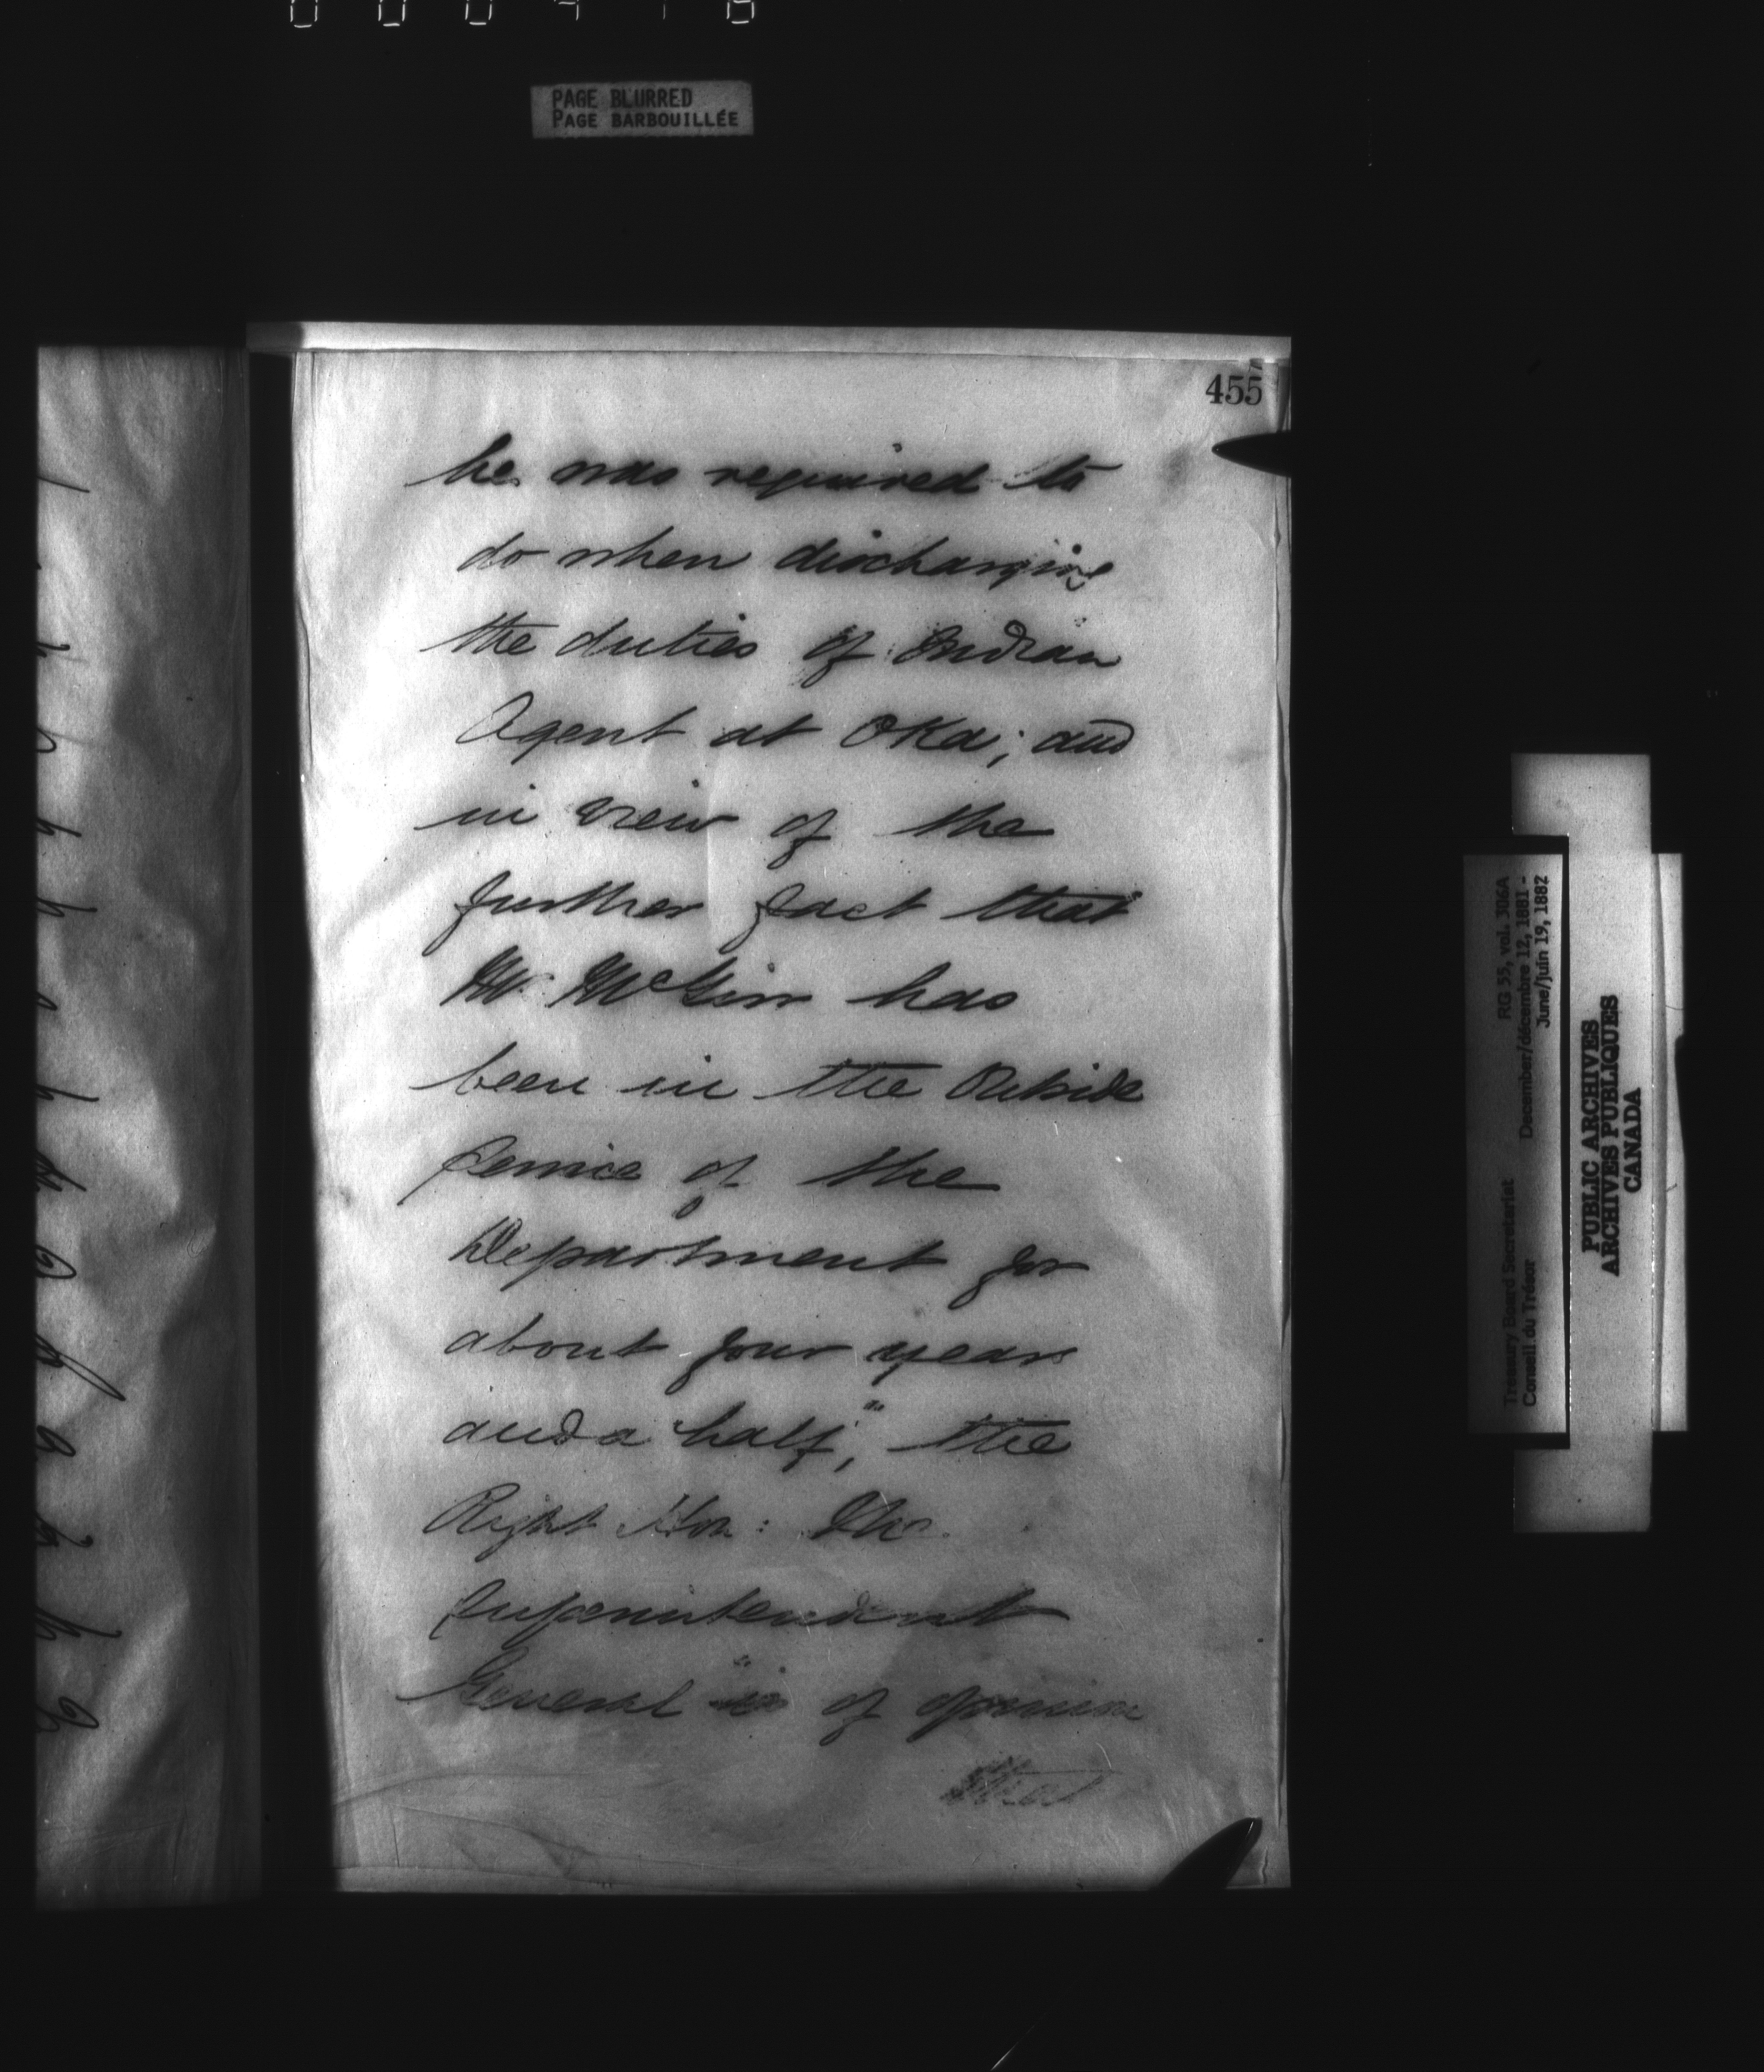 PAGE BLURRED
PAGE BARBOUILLÉE
455
he was required to
do when discharging
the duties of Indian
Agent at Oka; and
in view of the
further fact that
Mr. McGirr has
been in the Outside
Service of the
Department for
about four years
and a half," the
Right Hon: The
Superintendent
General "is of opinion
that
RG 55, vol. 306A
December/décembre 12, 1881 -
June/juin 19, 1882
Treasury Board Secretariat
Conseil du Trésor
PUBLIC ARCHIVES
ARCHIVES PUBLIQUES
CANADA